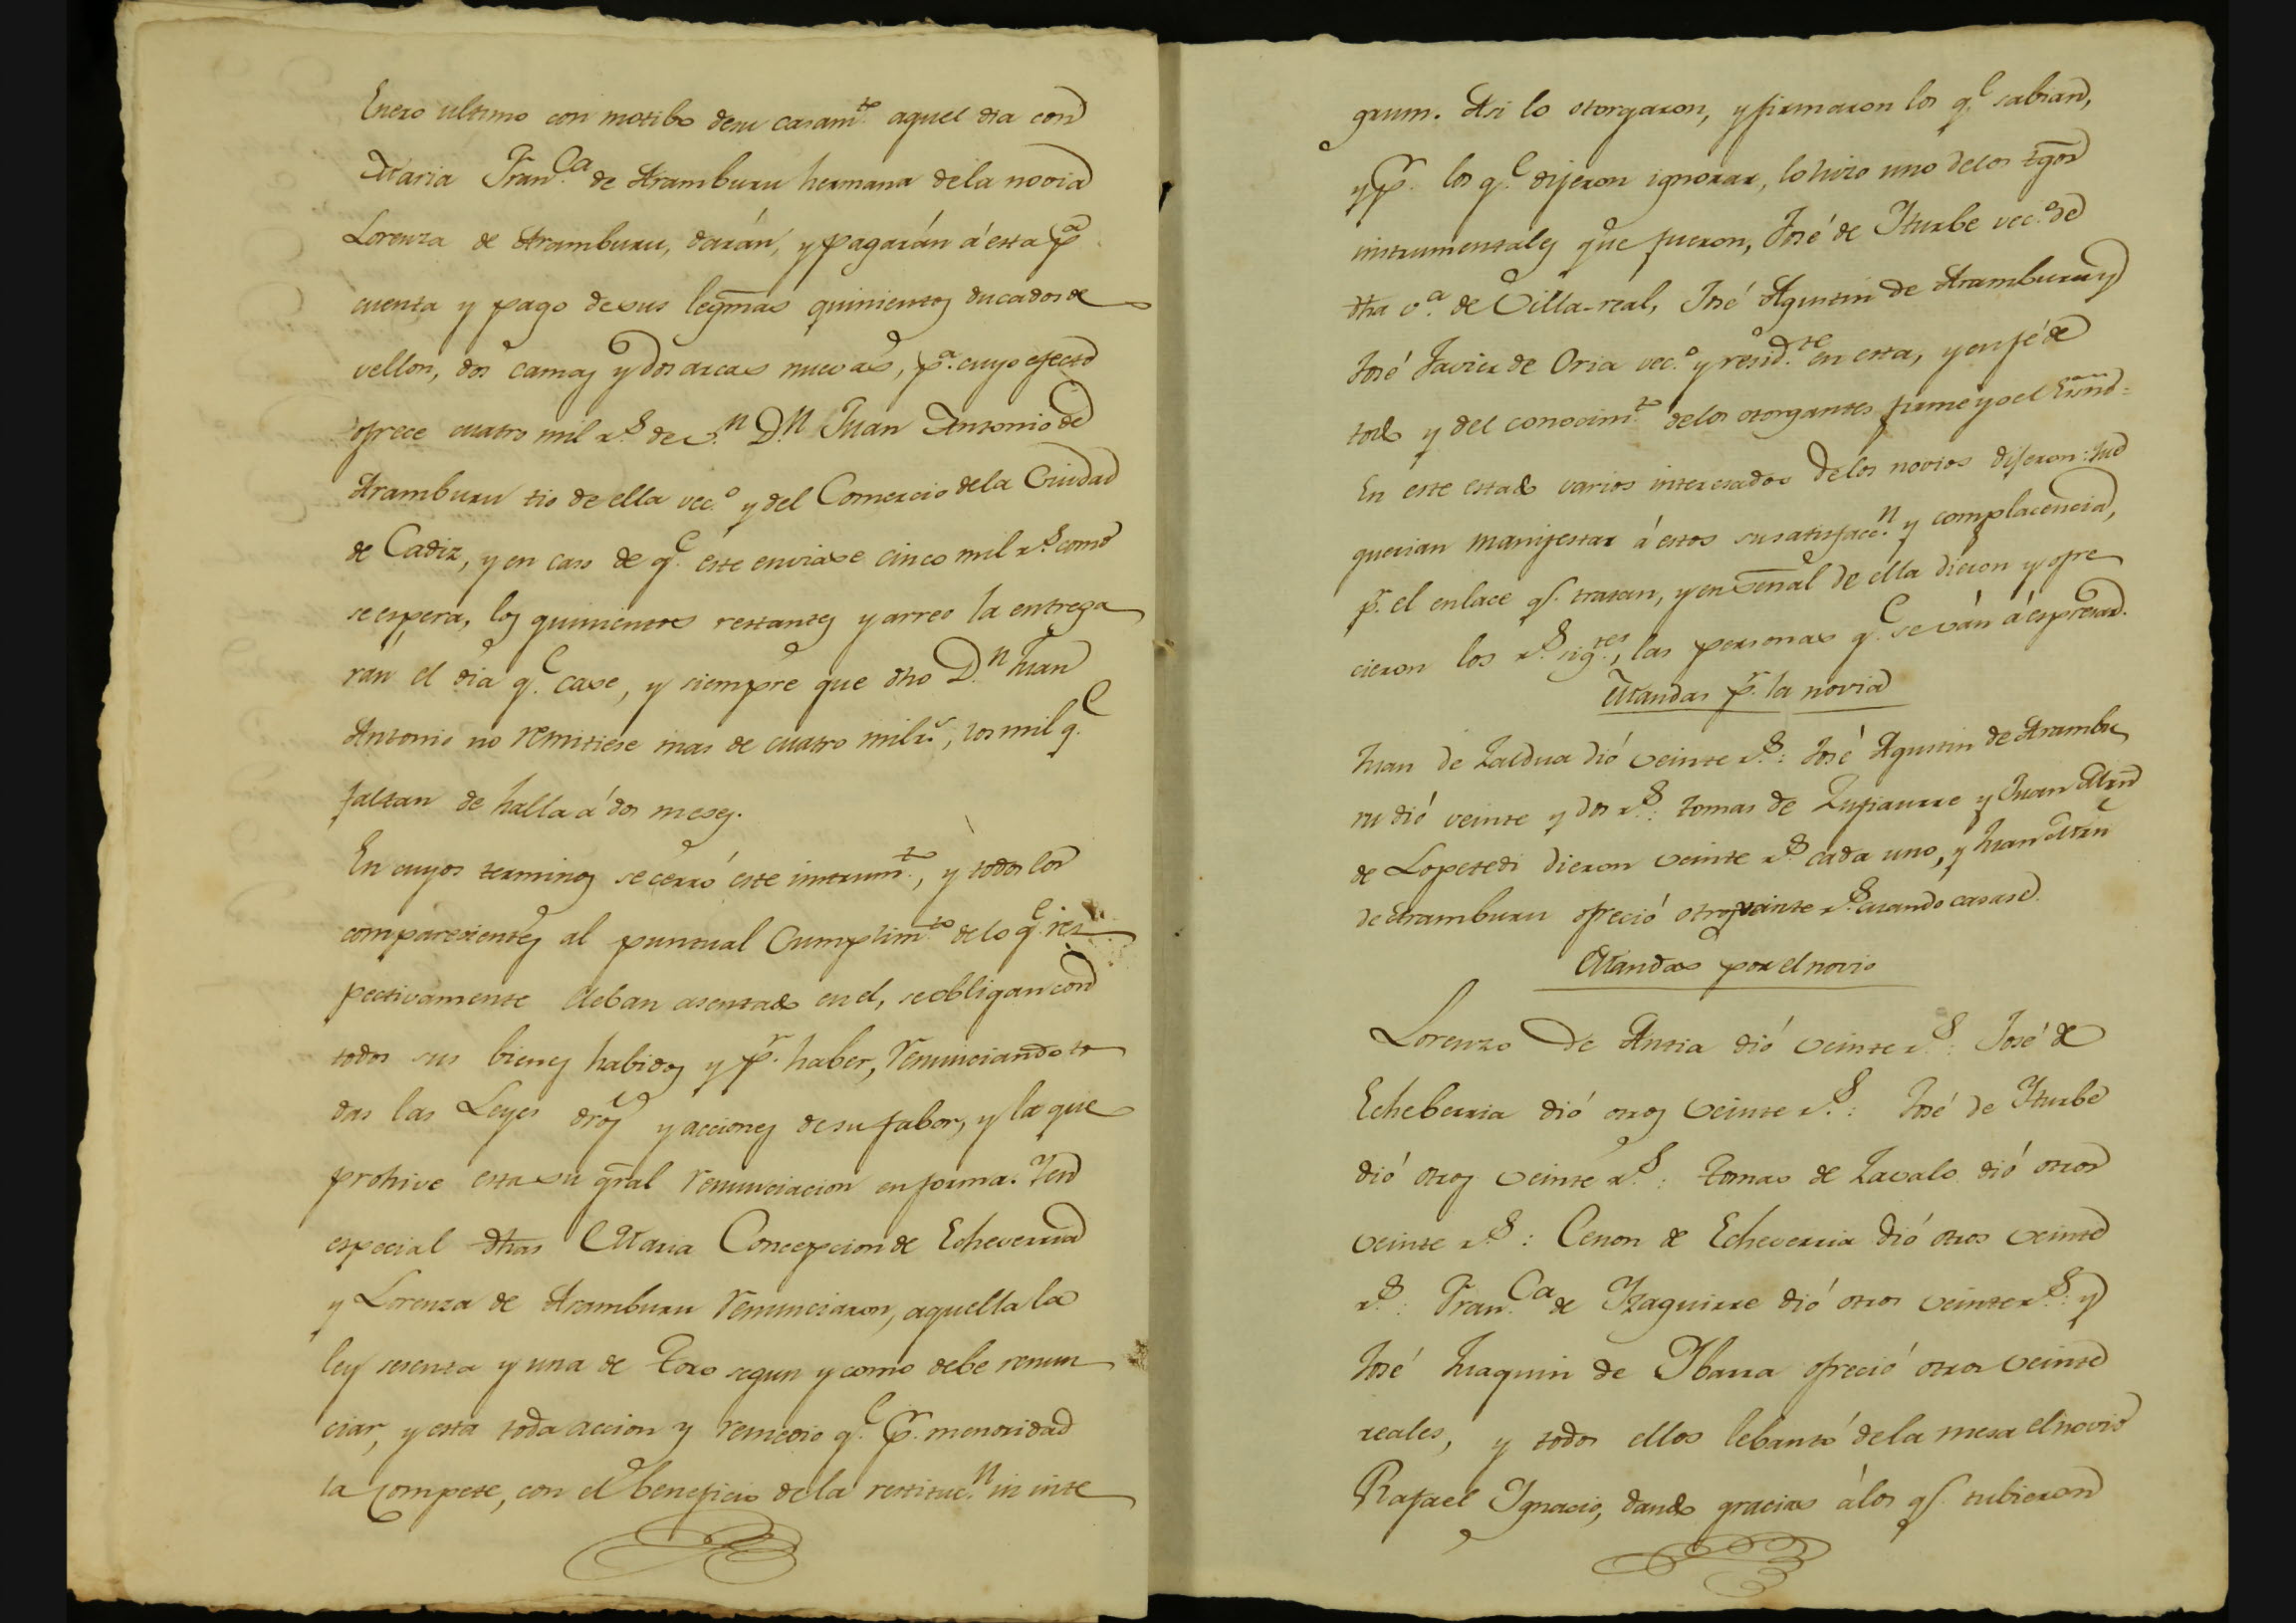 Enero ultimo con motibo de su casam.to aquel dia con
Maria Fran.ca de Aramburu hermana de la novia
Lorenza de Aramburu, darán, y pagarán á esta p.a
cuenta y pago de sus legmas quinientos ducados de
vellon, dos camas y dos arcas nuevas, p.a cuyo efecto
ofrece cuatro mil r.s de v.n D.n Juan Antonio de
Aramburu tio de ella vec.o y del Comercio de la Ciudad
de Cadiz, y en caso de q.e este enviase cinco mil r.s como
se espera, los quinientos restantes y arreo la entrega
rán el dia q.e case, y siempre que dho D.n Juan
Antonio no remitiese mas de cuatro mil r.s, los mil q.e
faltan de halla á dos meses.
En cuyos terminos se cerró este instrum.to, y todos los
comparecientes al puntual Cumplim.to de lo q.e res
pectivamente deban asentado en el, se obligan con
todos sus bienes habidos y p.r haber, renunciando to
das las Leyes dros y acciones de su fabor, y la que
prohive esta su gral renunciacion en forma. Y en
especial dhas Maria Concepcion de Echeverria
y Lorenza de Aramburu renunciaron, aquella la
ley sesenta y una de Toro segun y como debe renun
ciar, y esta toda accion y remedio q.e p.r menoridad
la compete, con el beneficio de la restituc.n in inte
grum. Asi lo otorgaron, y firmaron los q.e sabian,
y p.r los q.e dijeron ignorar, lo hizo uno de los tgos
instrumentales que fueron, José de Yturbe vec.o de
dha v.a de Villa-real, José Agustin de Aramburu y
José Javier de Oria vec.o y resid.te en esta, y en fé de
todo y del conocim.to de los otorgantes firme yo el Esno =
En este estado varios interesados de los novios dijeron: que
querian manifestar á estos su satisfacc.n y complacencia,
p.r el enlace q.e tratan, y en señal de ella dieron y ofre
cieron los r.s sig.tes, las personas q.e se ván á espresar.
Mandas p.r la novia
Juan de Zaldua dió veinte r.s: José Agustin de Arambu
ru dió veinte y dos r.s: Tomas de Zufiaurre y Juan Mrn
de Lopetedi dieron veinte r.s cada uno, y Juan Mrn
de Aramburu ofreció otros veinte r.s cuando casase.
Mandas por el novio
Lorenzo de Antia dió veinte r.s: José de
Echeberria dió otros veinte r.s: José de Yturbe
dió otros veinte r.s: Tomas de Zavalo dió otros
veinte r.s: Cenon de Echeverria dió otros veinte
r.s: Fran.ca de Yzaguirre dió otros veinte r.s: y
José Juaquin de Ybarra ofreció otros veinte
reales, y todos ellos lebantó de la mesa el novio
Rafael Ygnacio, dando gracias á los q.e tubieron